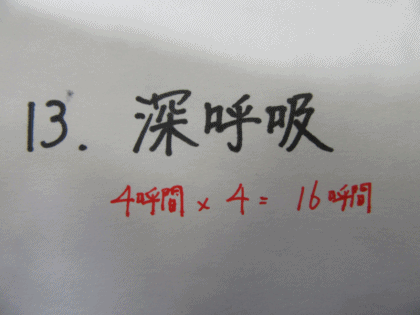 13. 深呼吸
4呼間 × 4 = 16呼間